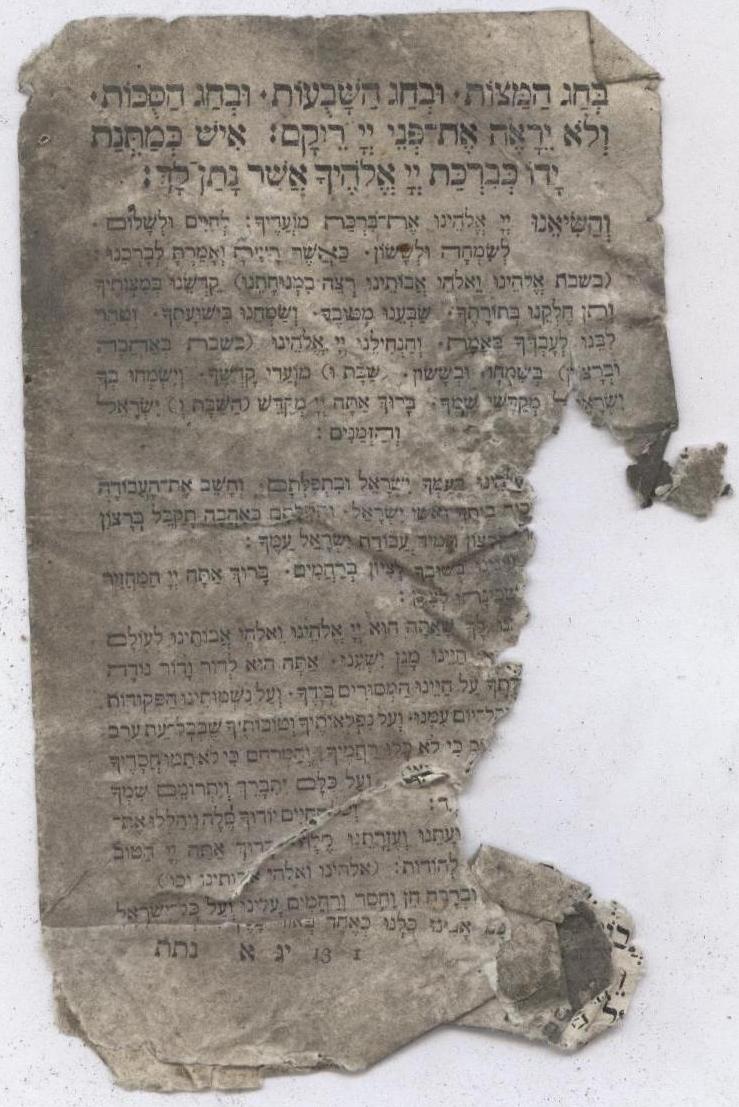 בְּחַג הַמַּצּוֹת · וּבְחַג הַשָּׁבֻעוֹת · וּבְחַג הַסֻּכּוֹת ·
וְלֹא יֵרָאֶה אֶת־פְּנֵי יְיָ רֵיקָם : אִישׁ כְּמַתְּנַת
יָדוֹ כְּבִרְכַּת יְיָ אֱלֹהֶיךָ אֲשֶׁר נָתַן־לָךְ :
וְהַשִּׂיאֵנוּ יְיָ אֱלֹהֵינוּ אֶת־בִּרְכַּת מוֹעֲדֶיךָ : לְחַיִּים וּלְשָׁלוֹם ·
לְשִׂמְחָה וּלְשָׂשׂוֹן · כַּאֲשֶׁר רָצִיתָ וְאָמַרְתָּ לְבָרְכֵנוּ :
(בשבת אֱלֹהֵינוּ וֵאלֹהֵי אֲבוֹתֵינוּ רְצֵה בִמְנוּחָתֵנוּ) קַדְּשֵׁנוּ בְּמִצְוֹתֶיךָ
וְתֵן חֶלְקֵנוּ בְּתוֹרָתֶךָ · שַׂבְּעֵנוּ מִטּוּבֶךָ · וְשַׂמְּחֵנוּ בִּישׁוּעָתֶךָ · וְטַהֵר
לִבֵּנוּ לְעָבְדְּךָ בֶּאֱמֶת · וְהַנְחִילֵנוּ יְיָ אֱלֹהֵינוּ (בשבת בְּאַהֲבָה
וּבְרָצוֹן) בְּשִׂמְחָה וּבְשָׂשׂוֹן · שַׁבָּת וּ) מוֹעֲדֵי קָדְשֶׁךָ · וְיִשְׂמְחוּ בְךָ
יִשְׂרָאֵל מְקַדְּשֵׁי שְׁמֶךָ · בָּרוּךְ אַתָּה יְיָ מְקַדֵּשׁ (הַשַּׁבָּת וְ) יִשְׂרָאֵל
וְהַזְּמַנִּים :
בְּעַמְּךָ יִשְׂרָאֵל וּבִתְפִלָּתָם · וְהָשֵׁב אֶת־הָעֲבוֹדָה
בֵיתֶךָ וְאִשֵּׁי יִשְׂרָאֵל · וּתְפִלָּתָם בְּאַהֲבָה תְקַבֵּל בְּרָצוֹן
תָּמִיד עֲבוֹדַת יִשְׂרָאֵל עַמֶּךָ :
בְּשׁוּבְךָ לְצִיּוֹן בְּרַחֲמִים · בָּרוּךְ אַתָּה יְיָ הַמַּחֲזִיר
לְצִיּוֹן :
לָךְ שָׁאַתָּה הוּא יְיָ אֱלֹהֵינוּ וֵאלֹהֵי אֲבוֹתֵינוּ לְעוֹלָם
חַיֵּינוּ מָגֵן יִשְׁעֵנוּ · אַתָּה הוּא לְדוֹר וָדוֹר נוֹדֶה
עַל חַיֵּינוּ הַמְּסוּרִים בְּיָדֶךָ · וְעַל נִשְׁמוֹתֵינוּ הַפְּקוּדוֹת
יוֹם עִמָּנוּ · וְעַל נִפְלְאוֹתֶיךָ וְטוֹבוֹתֶיךָ שֶׁבְּכָל־עֵת עֶרֶב
כִּי לֹא כָלוּ רַחֲמֶיךָ וְהַמְרַחֵם כִּי לֹא תַמּוּ חֲסָדֶיךָ
וְעַל כֻּלָּם יִתְבָּרֵךְ וְיִתְרוֹמֵם שִׁמְךָ
הַחַיִּים יוֹדוּךָ סֶּלָה וִיהַלְלוּ אֶת־
וְעֶזְרָתֵנוּ סֶלָה בָּרוּךְ אַתָּה יְיָ הַטּוֹב
לְהוֹדוֹת : (אלהינו ואלהי אבותינו וכו)
וּבְרָכָה חֵן וָחֶסֶד וְרַחֲמִים עָלֵינוּ וְעַל כָּל־יִשְׂרָאֵל
אָבִינוּ כֻּלָּנוּ כְּאֶחָד בְּאוֹר
נתת א יג 13 1